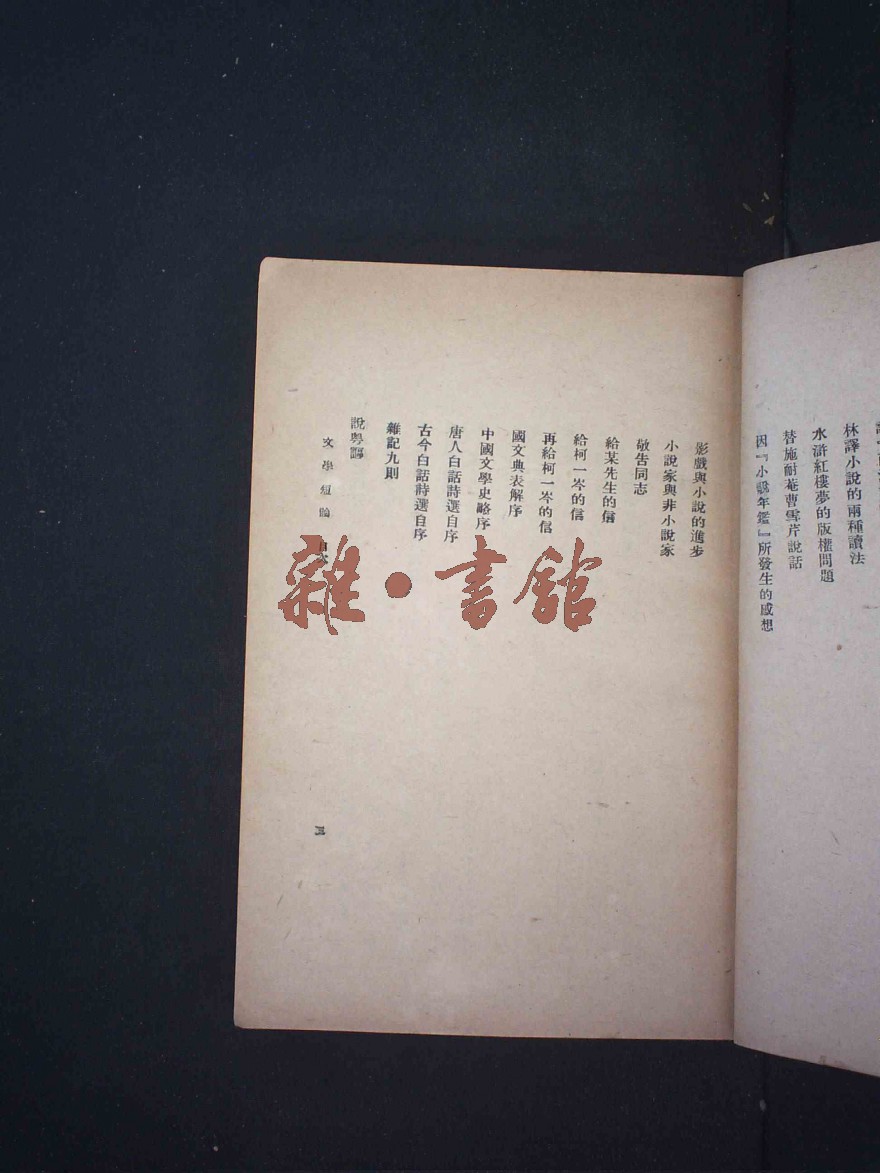 林譯小說的兩種讀法
水滸紅樓夢的版權問題
替施耐菴曹雪芹說話
因『小說年鑑』所發生的感想
影戲與小說的進步
小說家與非小說家
敬告同志
給某先生的信
給柯一岑的信
再給柯一岑的信
國文典表解序
中國文學史略序
唐人白話詩選自序
古今白話詩選自序
雜記九則
說粵謳
文學短論 目
三
雜·書館